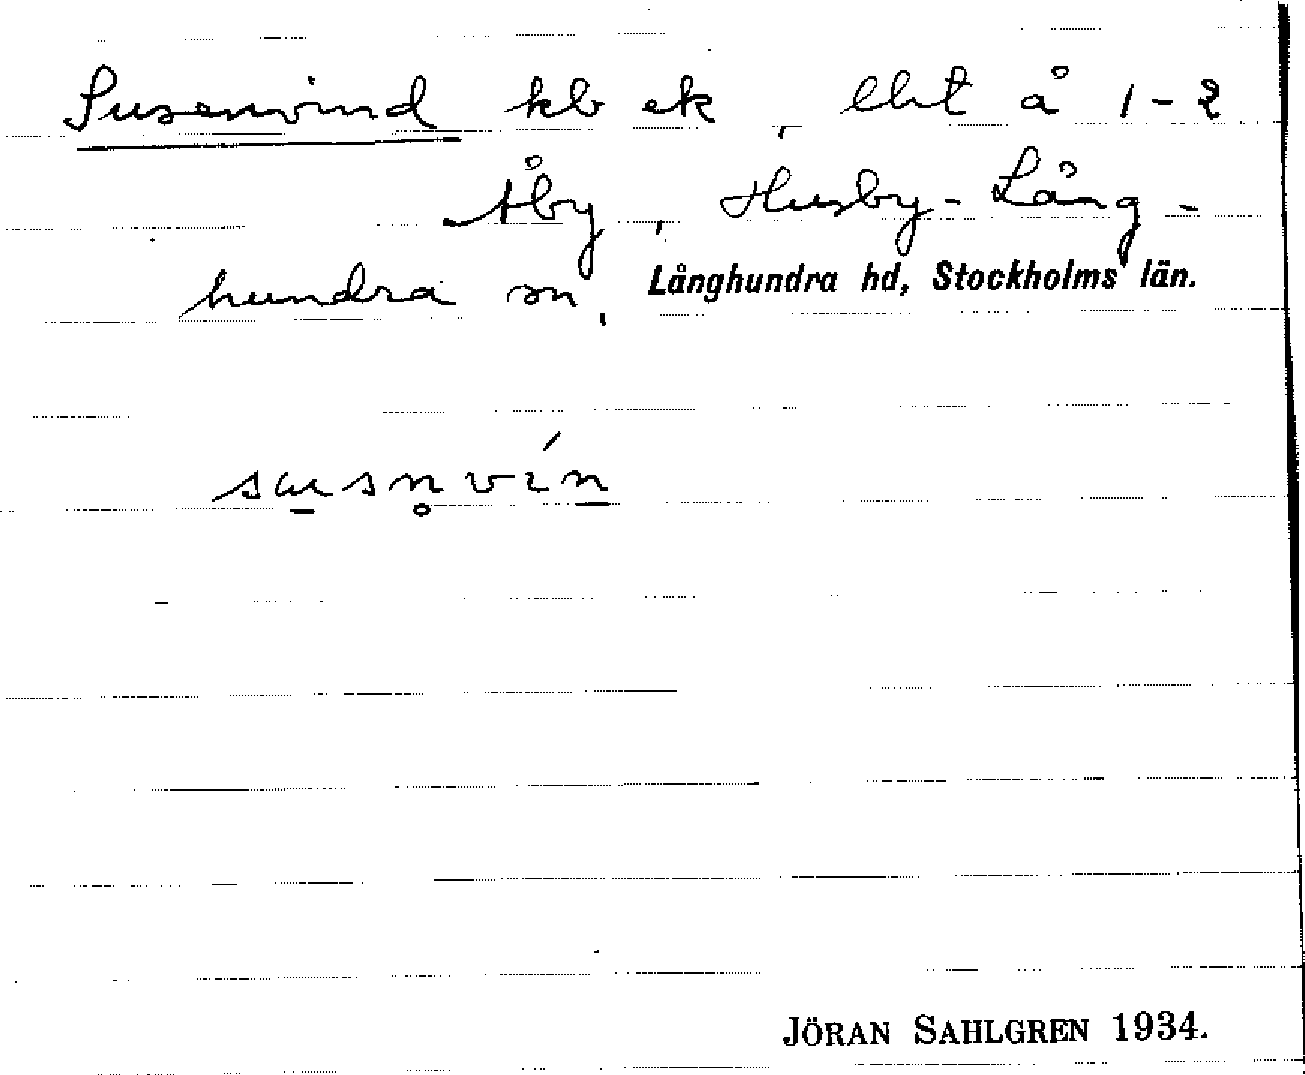 Susenvind kb ek, lht å 1-2
Åby, Husby-Lång-
hundra sn, Långhundra hd, Stockholms län.
JÖRAN SAHLGREN 1934.